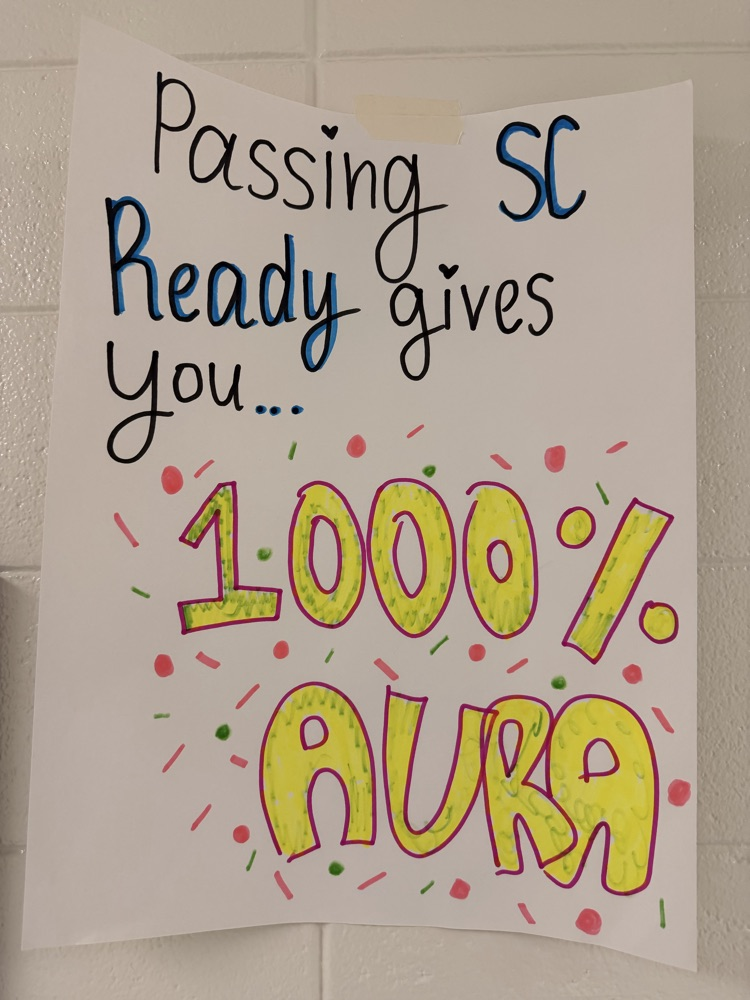 Passing SC
Ready gives
you...
1000%
AURA